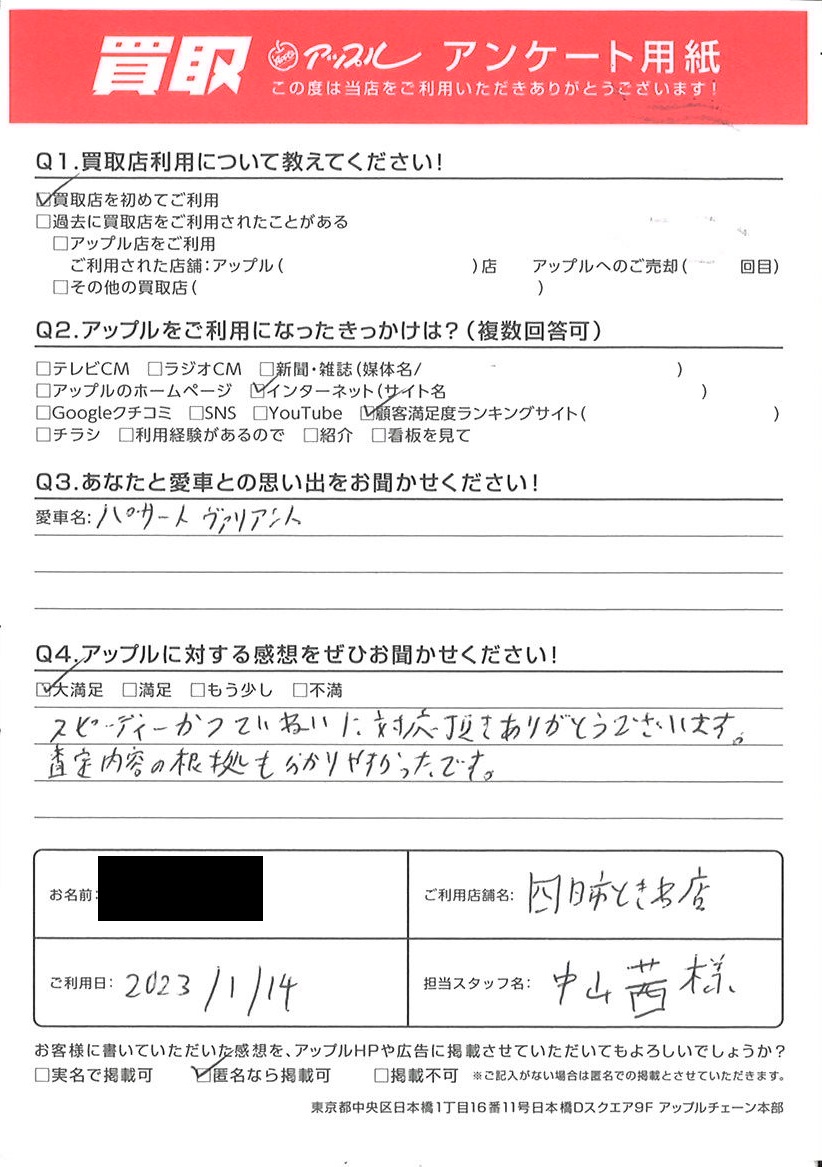 買取 アップル アンケート用紙
この度は当店をご利用いただきありがとうございます!
Q1.買取店利用について教えてください!
☑買取店を初めてご利用
□過去に買取店をご利用されたことがある
□アップル店をご利用
ご利用された店舗:アップル( )店 アップルへのご売却( 回目)
□その他の買取店( )
Q2.アップルをご利用になったきっかけは?(複数回答可)
□テレビCM □ラジオCM □新聞・雑誌(媒体名/ )
□アップルのホームページ ☑インターネット(サイト名 )
□Googleクチコミ □SNS □YouTube ☑顧客満足度ランキングサイト( )
□チラシ □利用経験があるので □紹介 □看板を見て
Q3.あなたと愛車との思い出をお聞かせください!
愛車名:パサート ヴァリアント
Q4.アップルに対する感想をぜひお聞かせください!
☑大満足 □満足 □もう少し □不満
スピーディーかつていねいに対応頂きありがとうございます。
査定内容の根拠も分かりやすかったです。
お名前:
ご利用店舗名: 四日市ときわ店
ご利用日: 2023/1/14
担当スタッフ名: 中山茜様
お客様に書いていただいた感想を、アップルHPや広告に掲載させていただいてもよろしいでしょうか?
□実名で掲載可 ☑匿名なら掲載可 □掲載不可 ※ご記入がない場合は匿名での掲載とさせていただきます。
東京都中央区日本橋1丁目16番11号日本橋Dスクエア9F アップルチェーン本部